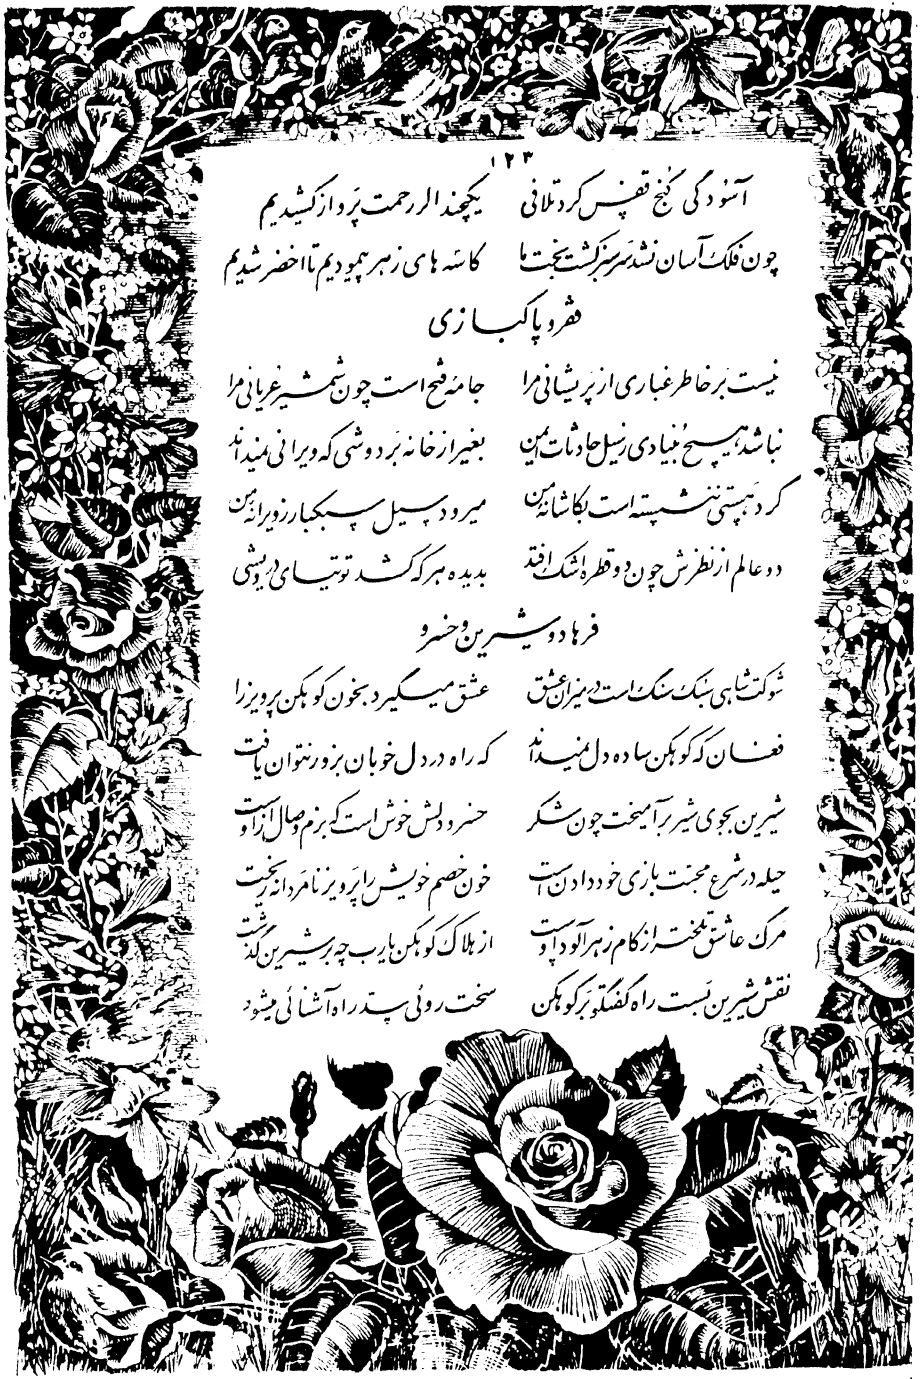 ۱۲۳
آسودگی کنج قفس کرد تلافی یکچند اگر زحمت پرواز کشیدیم
چون فلک آسان نشد سرسبز کشت بخت ما کاسه های زهر پیمودیم تا اخضر شدیم
فقر و پاکبازی
نیست بر خاطر غباری از پریشانی مرا جامهٔ فتح است چون شمشیر عریانی مرا
نباشد هیچ بنیادی ز سیل حادثات ایمن بغیر از خانه بردوشی که ویرانی نمیداند
گرد هستی ننشسته است بکاشانهٔ من میرود سیل سبکبار ز ویرانهٔ من
دو عالم از نظرش چون دو قطره اشک افتد بدیده هر که کشد توتیای درویشی
فرهاد و شیرین و خسرو
شوکت شاهی سبک سنگ است در میزان عشق عشق میگیرد بخون کوهکن پرویز را
فغان که کوهکن ساده دل نمیداند که راه در دل خوبان بزور نتوان یافت
شیرین بجوی شیر برآمیخت چون شکر خسرو دلش خوش است که بزم وصال ازوست
حیله در شرع محبت بازی خود دادن است خون خصم خویش را پرویز نامردانه ریخت
مرگ عاشق تلختر از کام زهرآلود اوست از هلاک کوهکن یارب چه بر شیرین گذشت
نقش شیرین بست راه گفتگو بر کوهکن سخت روئی سد راه آشنائی میشود